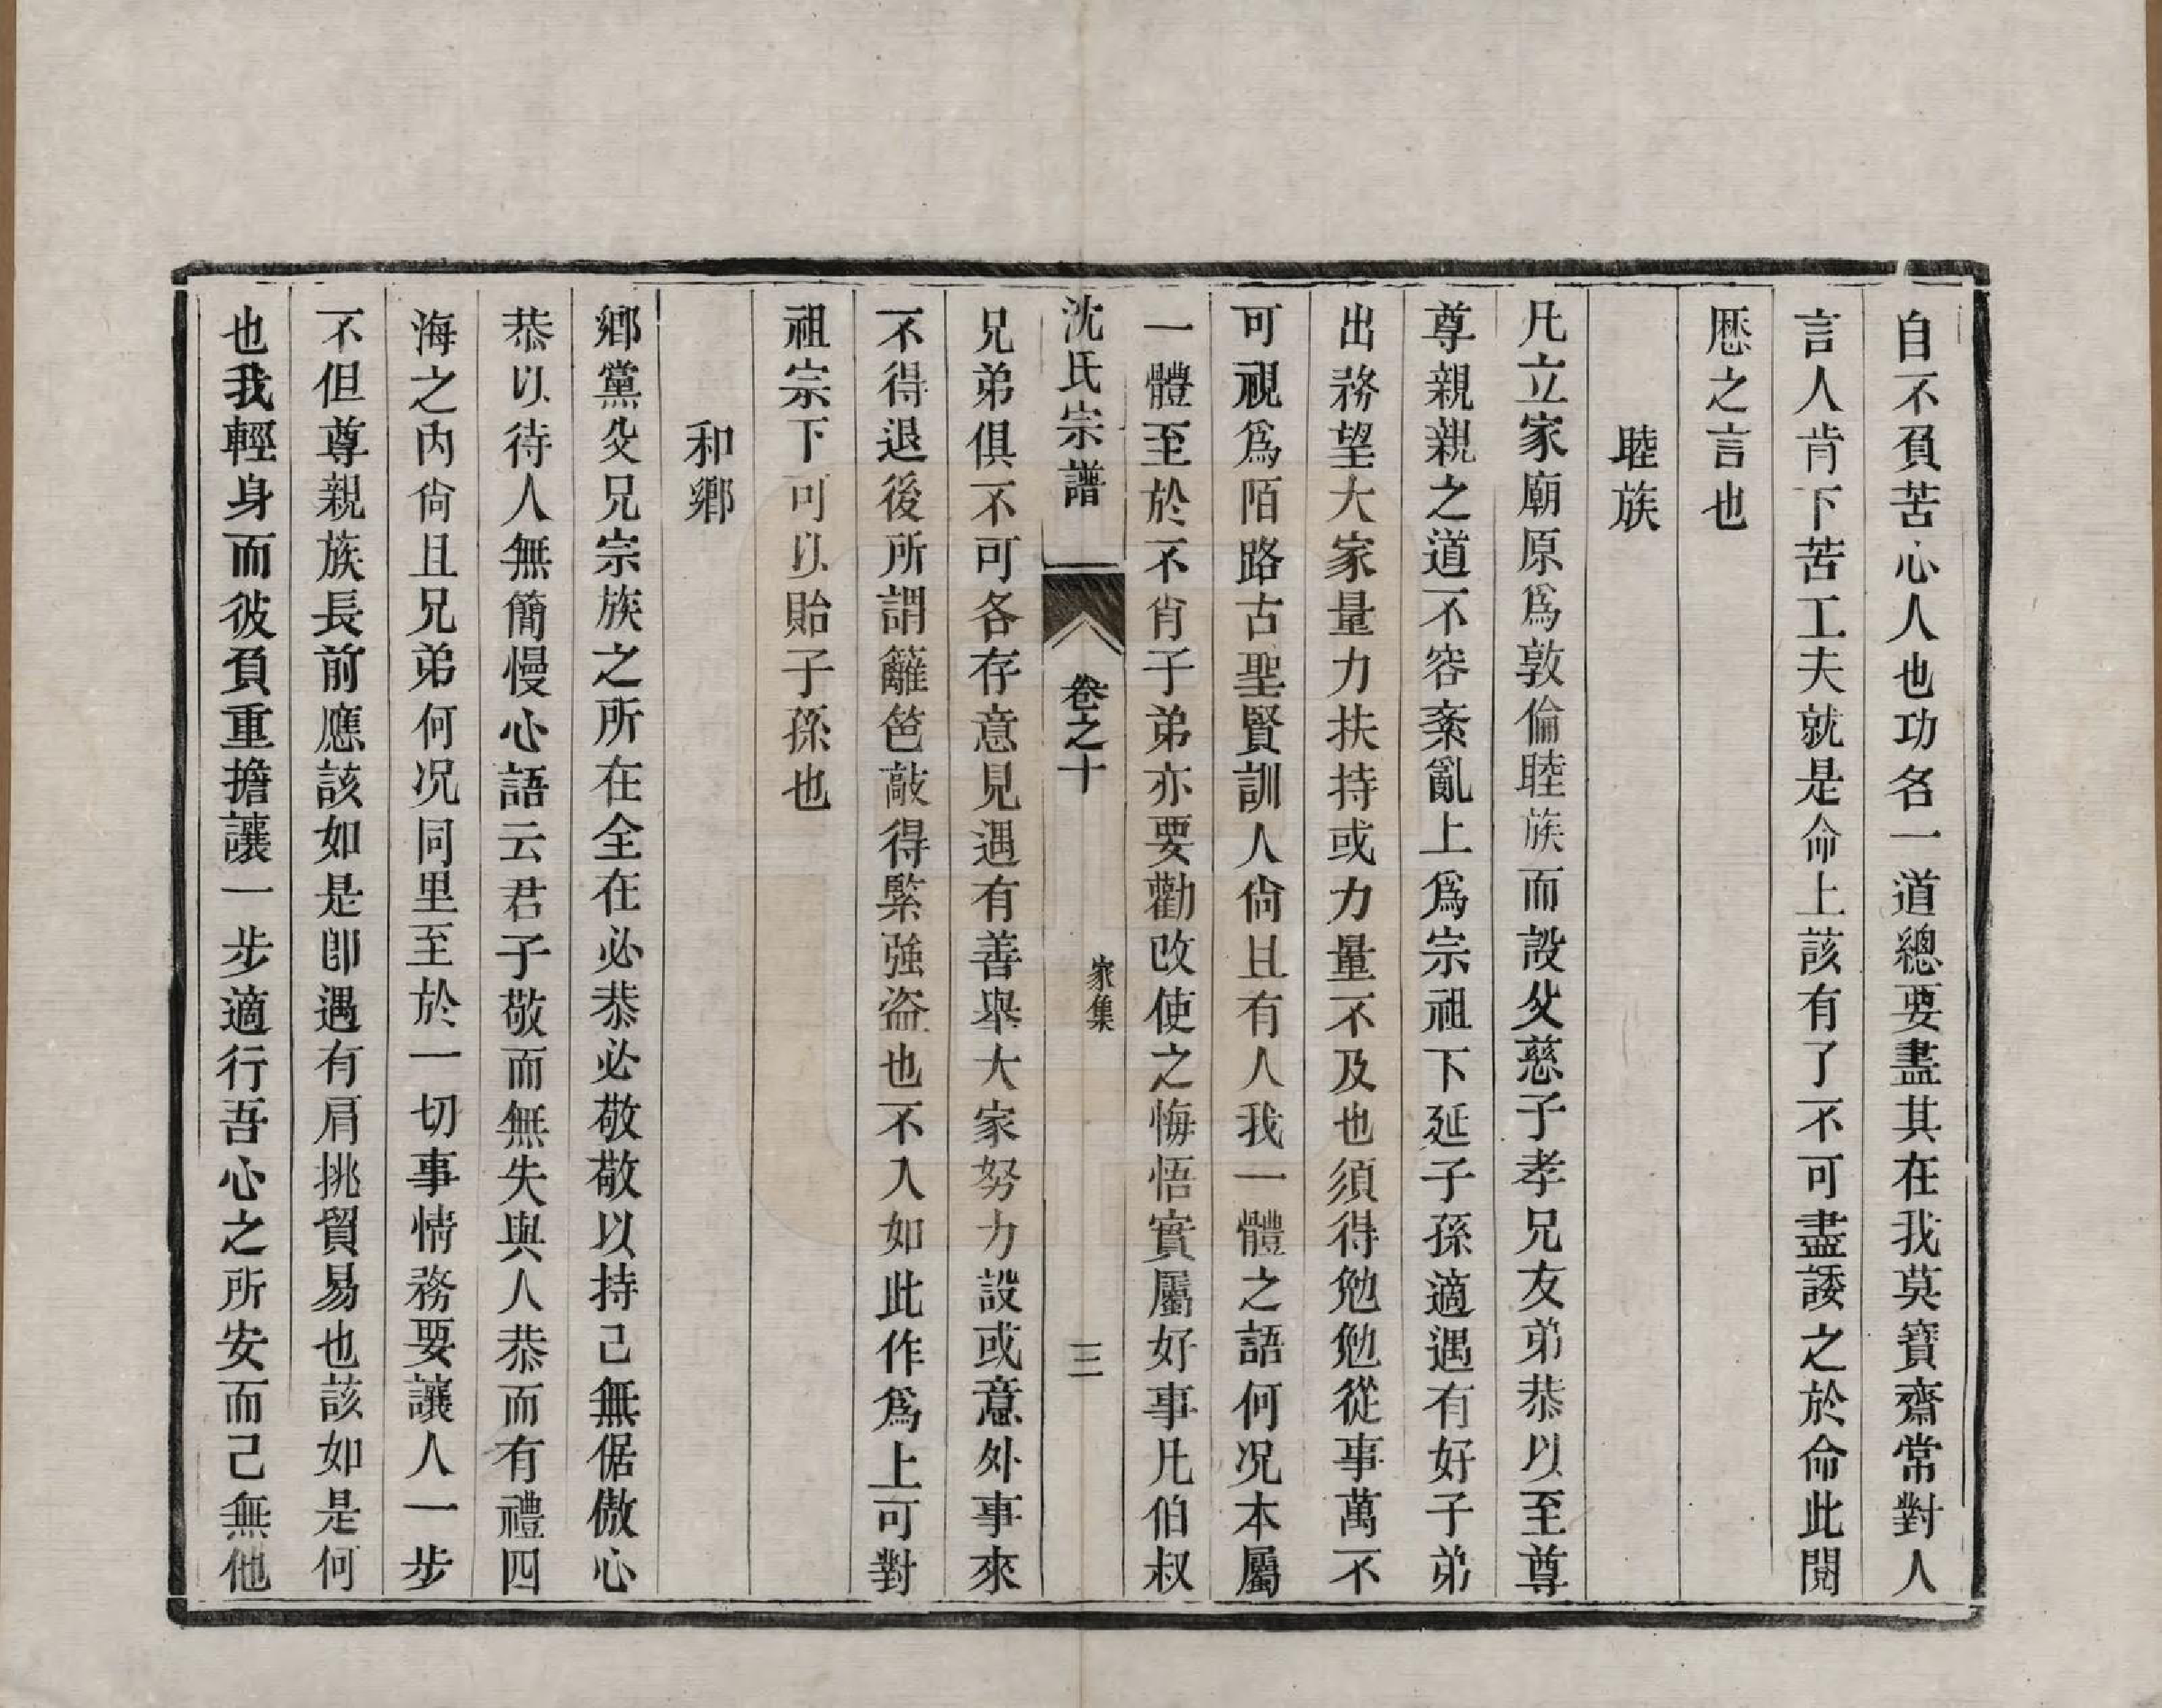 自不負苦心人也功名一道總要盡其在我莫寶齋常對人
言人肯下苦工夫就是命上該有了不可盡諉之於命此閱
歷之言也
睦族
凡立家廟原爲敦倫睦族而設父慈子孝兄友弟恭以至尊
尊親親之道不容紊亂上爲宗祖下延子孫適遇有好子弟
出務望大家量力扶持或力量不及也須得勉勉從事萬不
可視爲陌路古聖賢訓人尙且有人我一體之語何况本屬
一體至於不肖子弟亦要勸改使之悔悟實屬好事凡伯叔
沈氏宗譜
卷之十
家集
三
兄弟俱不可各存意見遇有善舉大家努力設或意外事來
不得退後所謂籬笆敲得緊強盜也不入如此作爲上可對
祖宗下可以貽子孫也
和鄉
鄉黨父兄宗族之所在全在必恭必敬敬以持己無倨傲心
恭以待人無簡慢心語云君子敬而無失與人恭而有禮四
海之內尙且兄弟何况同里至於一切事情務要讓人一步
不但尊親族長前應該如是卽遇有肩挑貿易也該如是何
也我輕身而彼負重擔讓一步適行吾心之所安而己無他